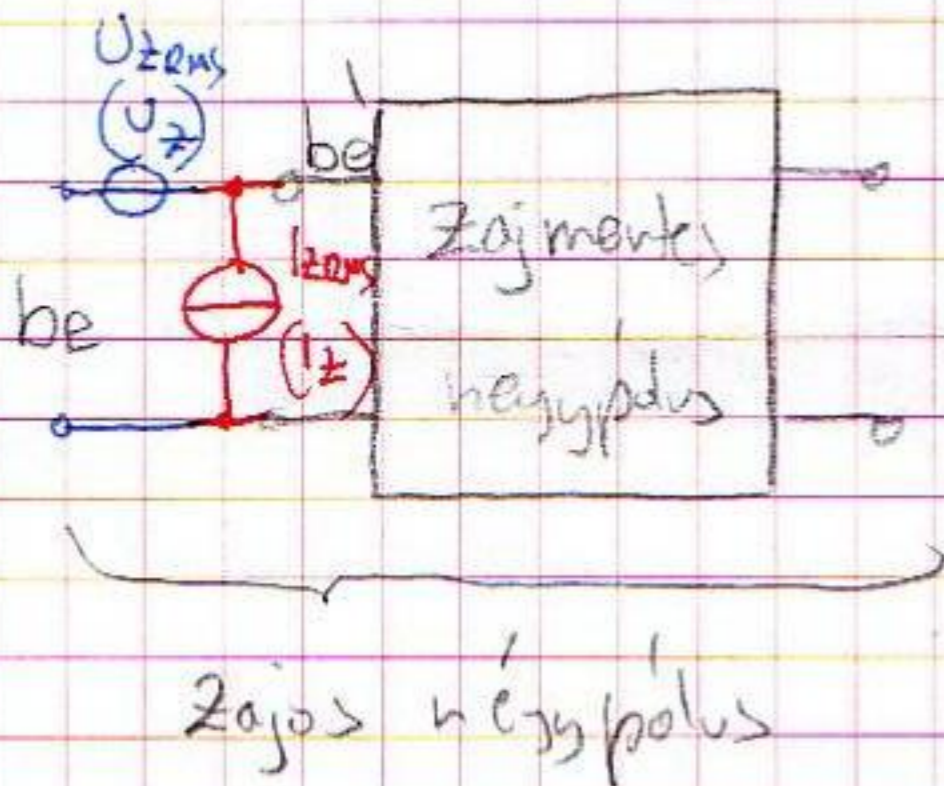 UzRMS
(Uz)
be
IzRMS
(Iz)
be
Zajmentes
négypólus
Zajos négypólus